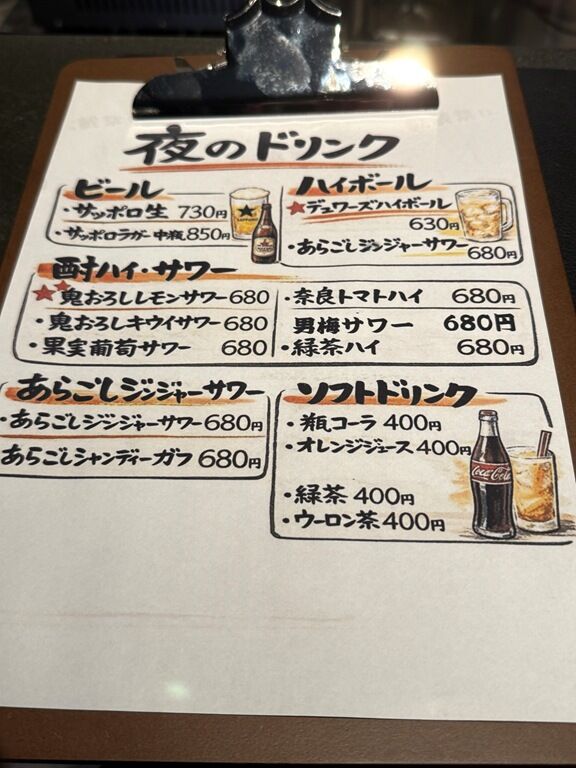 夜のドリンク
ビール
・サッポロ生 730円
・サッポロラガー中瓶 850円
ハイボール
★デュワーズハイボール
630円
・あらごしジンジャーサワー
680円
酎ハイ・サワー
★★鬼おろしレモンサワー 680
・鬼おろしキウイサワー 680
・果実葡萄サワー 680
・奈良トマトハイ 680円
男梅サワー 680円
・緑茶ハイ 680円
あらごしジンジャーサワー
・あらごしジンジャーサワー 680円
あらごしシャンディーガフ 680円
ソフトドリンク
・瓶コーラ 400円
・オレンジジュース 400円
・緑茶 400円
・ウーロン茶 400円
Coca-Cola